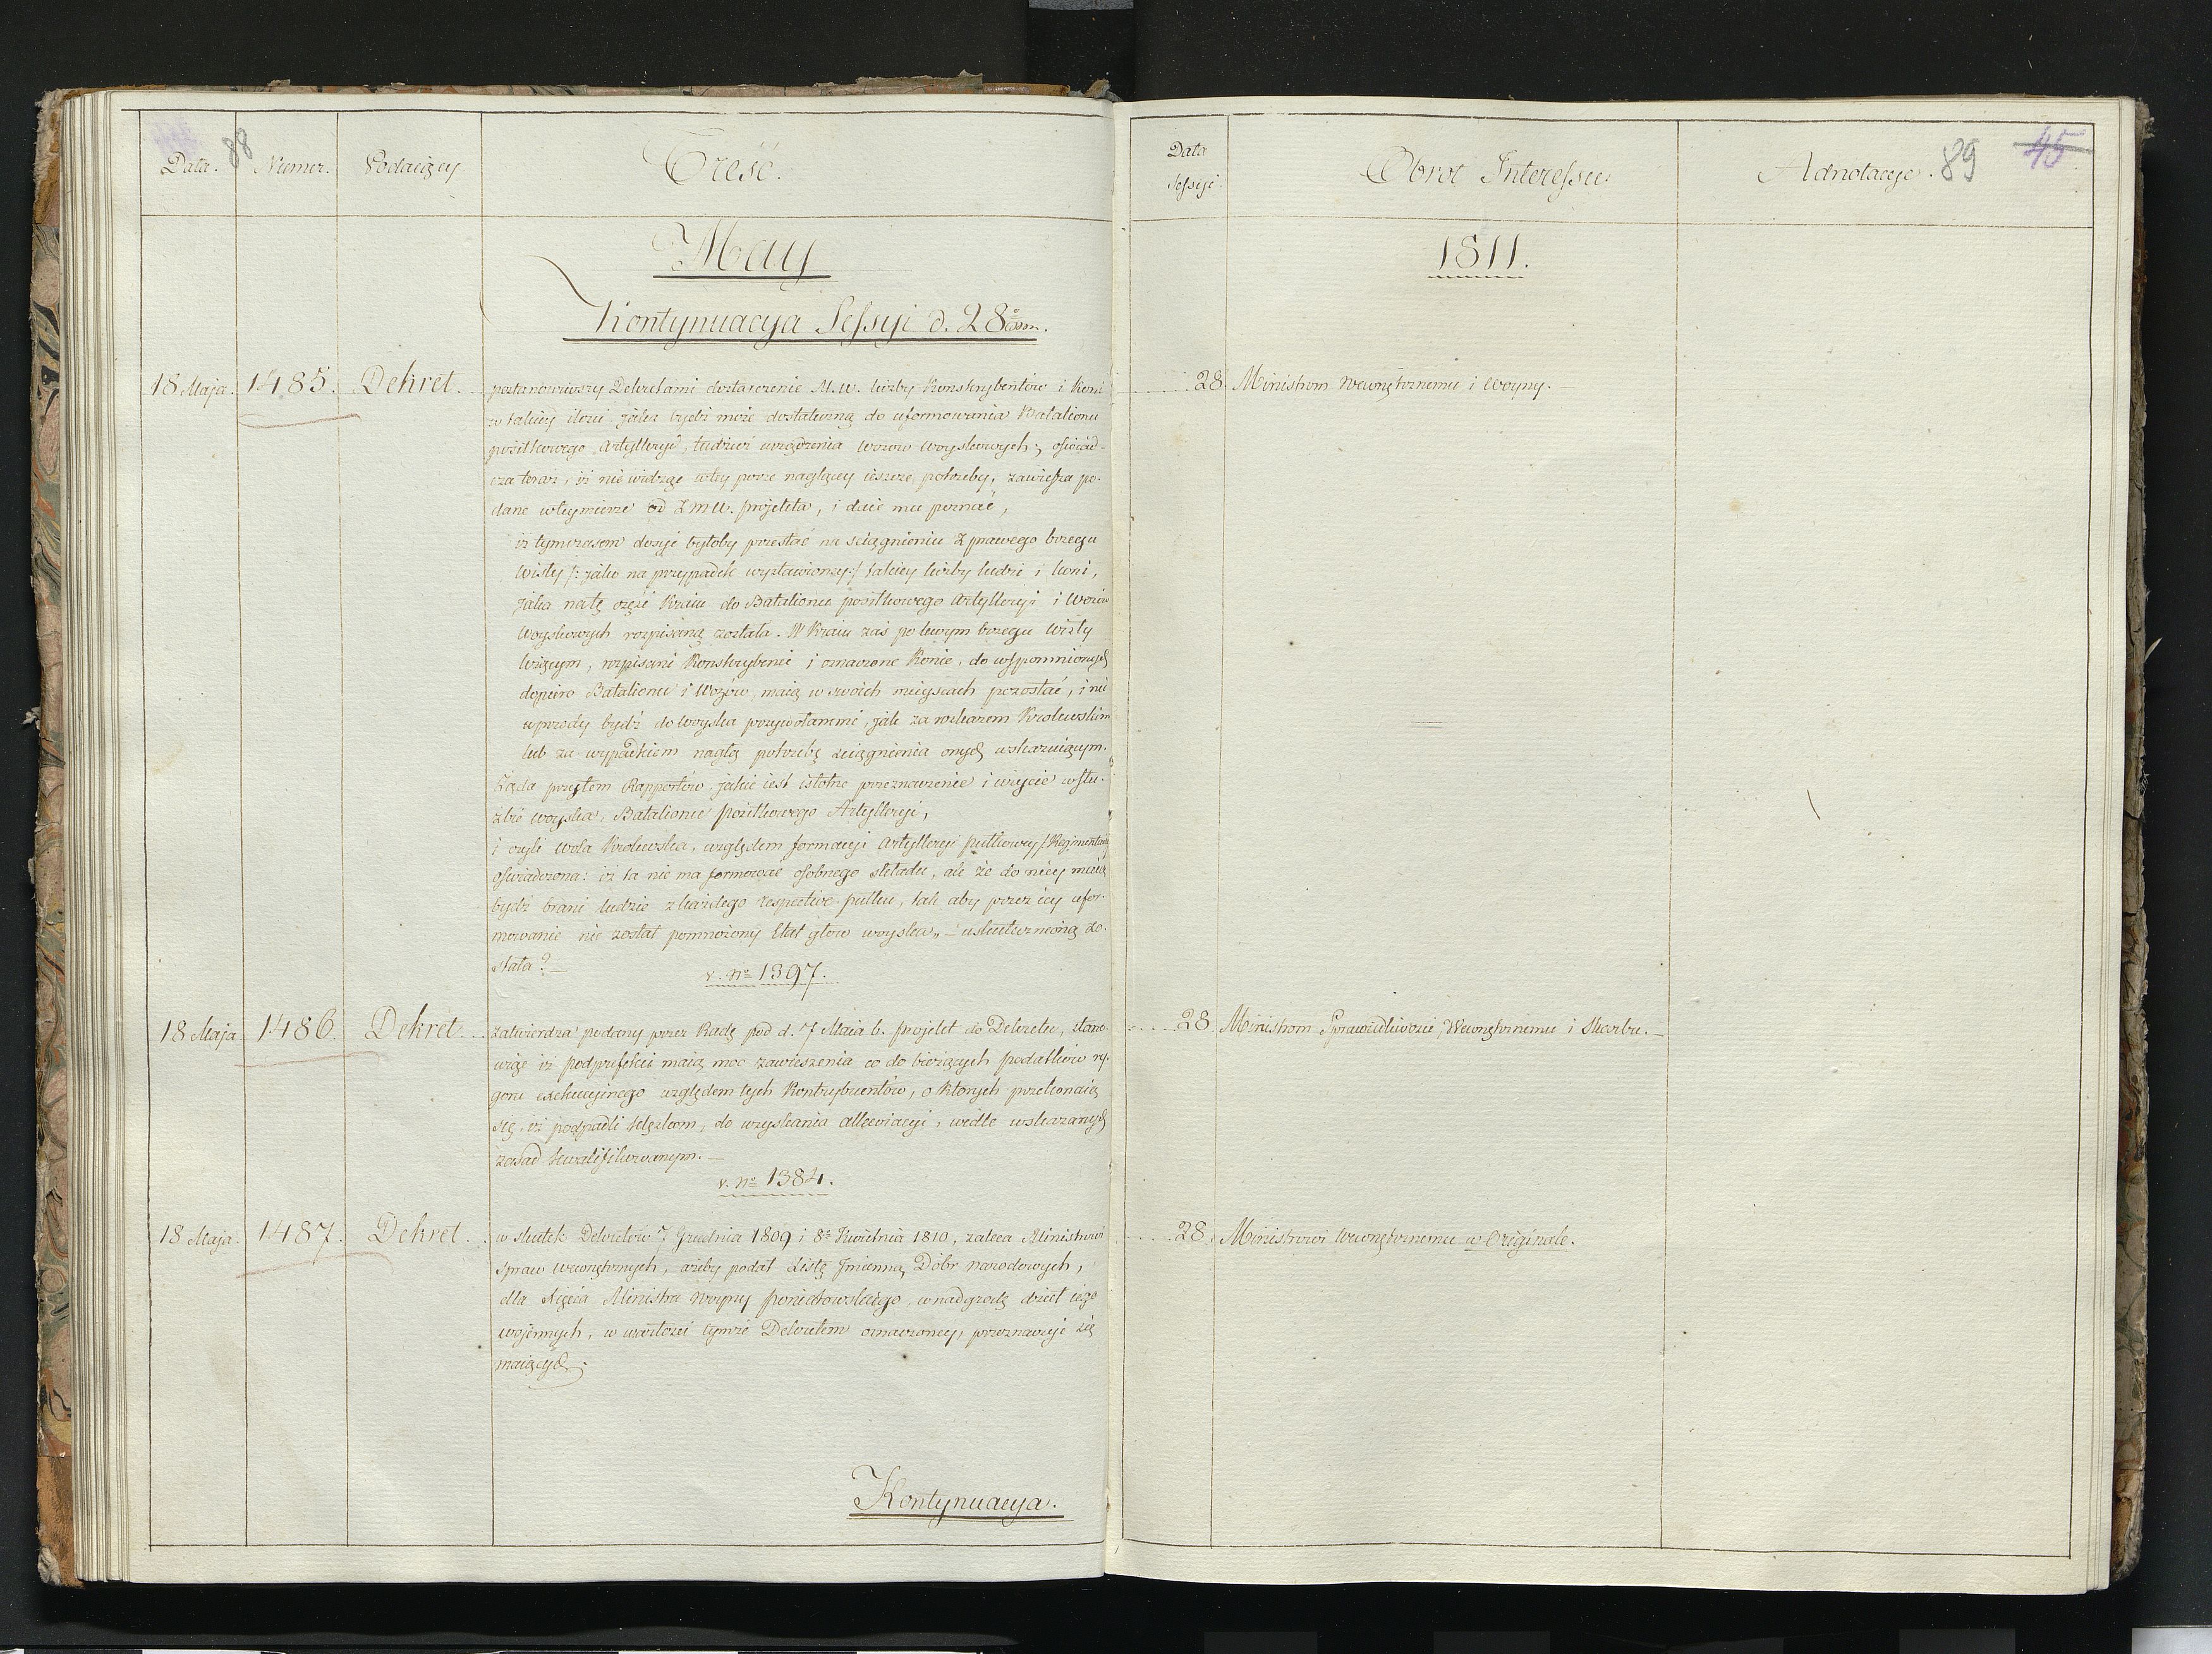 88
Data. Numer. Podaiący Treść.
May
Kontynuacya Sessyi d. 28º
18 Maja. 1485. Dekret. postanowiwszy Dekretami dostarczenie M.W. liczby Konskrybentów i Koni
w takiey ilości jaka bydź może dostateczną do uformowania Batalionu
positkowego Artylleryi, tudzież urządzenia wozow woyskowych; oświad-
cza teraz, iż nie widząc w tey porze naglącey ieszcze potrzeby, zawiesza po-
dane w tey mierze od projekta, i daie mu poznać,
iż tymczasem dosyć byłoby przestać na sciągnieniu z prawego brzegu
Wisły /: jako na przypadek wystawiony :/ takiey liczby ludzi i koni,
jaka na tę część Kraiu do Batalionu positkowego Artylleryi i Wozów
Woyskowych rozpisaną została. W Kraiu zaś po lewym brzegu Wisły
leżącym, rozpisani Konskrybenci i oznaczone Konie, do wspomnionych
dopiero Batalionu i Wozów, maią w swoich mieyscach pozostać, i nie
wprzody bydź do woyska przywołanemi, jak za rozkazem Krolewskim
lub za wypadkiem nagłą potrzebę sciągnienia onych wskazuiącym.
Żąda przytem Rapportów jakie iest istotne przeznaczenie i użycie w słu-
żbie woyska, Batalionu positkowego Artylleryi,
i czyli wola Krolewska, względem formacyi Artylleryi pułkowey /:
oświadczona: iż ta nie ma formować osobnego składu, ale że do niey maią
bydź brani ludzie z każdego respective pułku, tak aby przez iey ufor-
mowanie nie został pomnożony Etat głów woyska„ – uskutecznioną zo-
stała? –
v. Nº 1397.
18 Maja 1486. Dekret. zatwierdza podany przez Radę pod d. 7 Maia b. projekt do Dekretu, stano-
wiąc iż podprefekci maią moc zawieszenia co do bieżących podatków ry-
goru exekucyinego względem tych Kontrybuentów, o ktorych przekonaią
się, iż podpadli klęskom, do uzyskania allewiacyi, wedle wskazanych
zasad kwalifikowanym. –
v. Nº 1384.
18 Maja. 1487. Dekret. w skutek Dekretów 7 Grudnia 1809 i 8º Kwietnia 1810, zaleca Ministrowi
spraw wewnętrznych, ażeby podał Listę Jmienną Dobr narodowych,
dla Xięcia Ministra Woyny Poniatowskiego, w nadgrodę dzieł iego
wojennych, w wartości tymże Dekretem oznaczoney, przeznaczyć się
maiących.
Kontynuacya.
Data Sessyi. Obrot Interessu. Adnotacye. 89 45
1811.
28. Ministrom Wewnętrznemu i Woyny. –
28 Ministrom Sprawiedliwości, Wewnętrznemu i Skarbu. –
28. Ministrowi Wewnętrznemu w Originale.